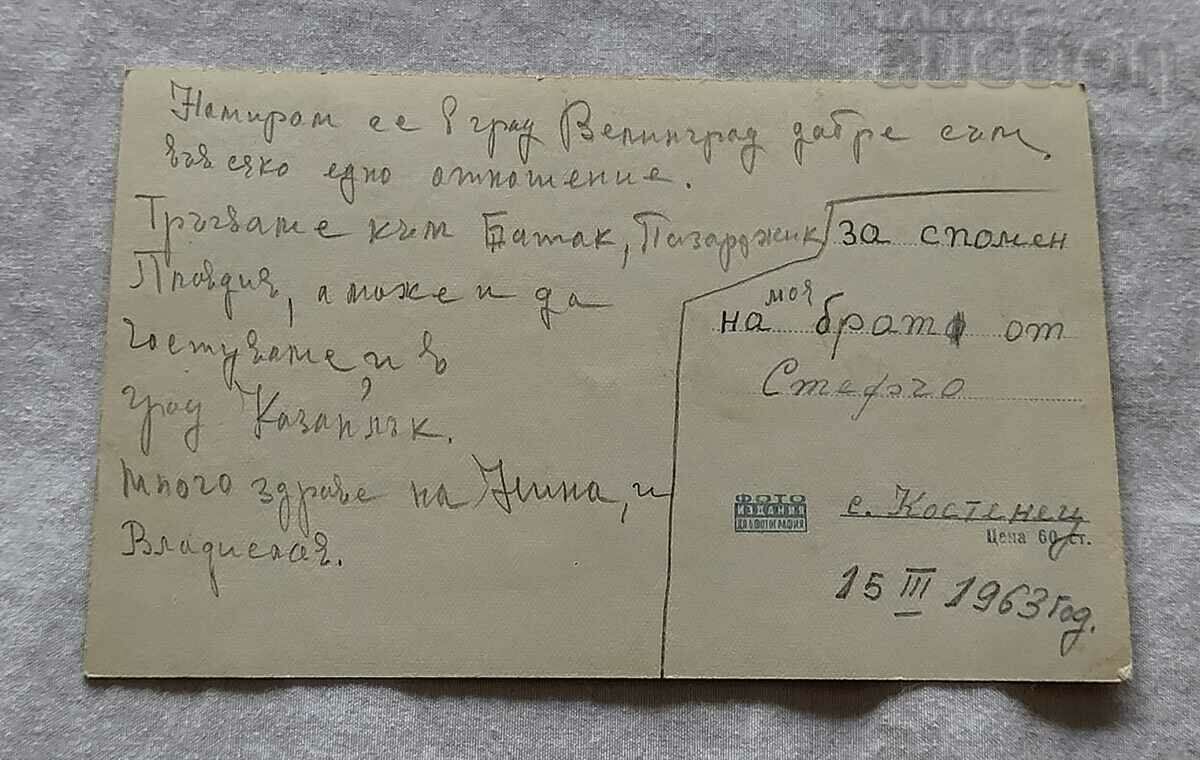 Намирам се в град Велинград добре съм
във сяко едно отношение.
Тръгваме към Батак, Пазарджик
Пловдив, а може и да
гостуваме и в
град Казанлък.
много здраве на Нина, и
Владислав.
за спомен
моя
на брат от
Стефчо
ФОТО
ИЗДАНИЯ
ДП БФОТОГРАФИЯ
с. Костенец
Цена 60 ст.
15 III 1963 год.